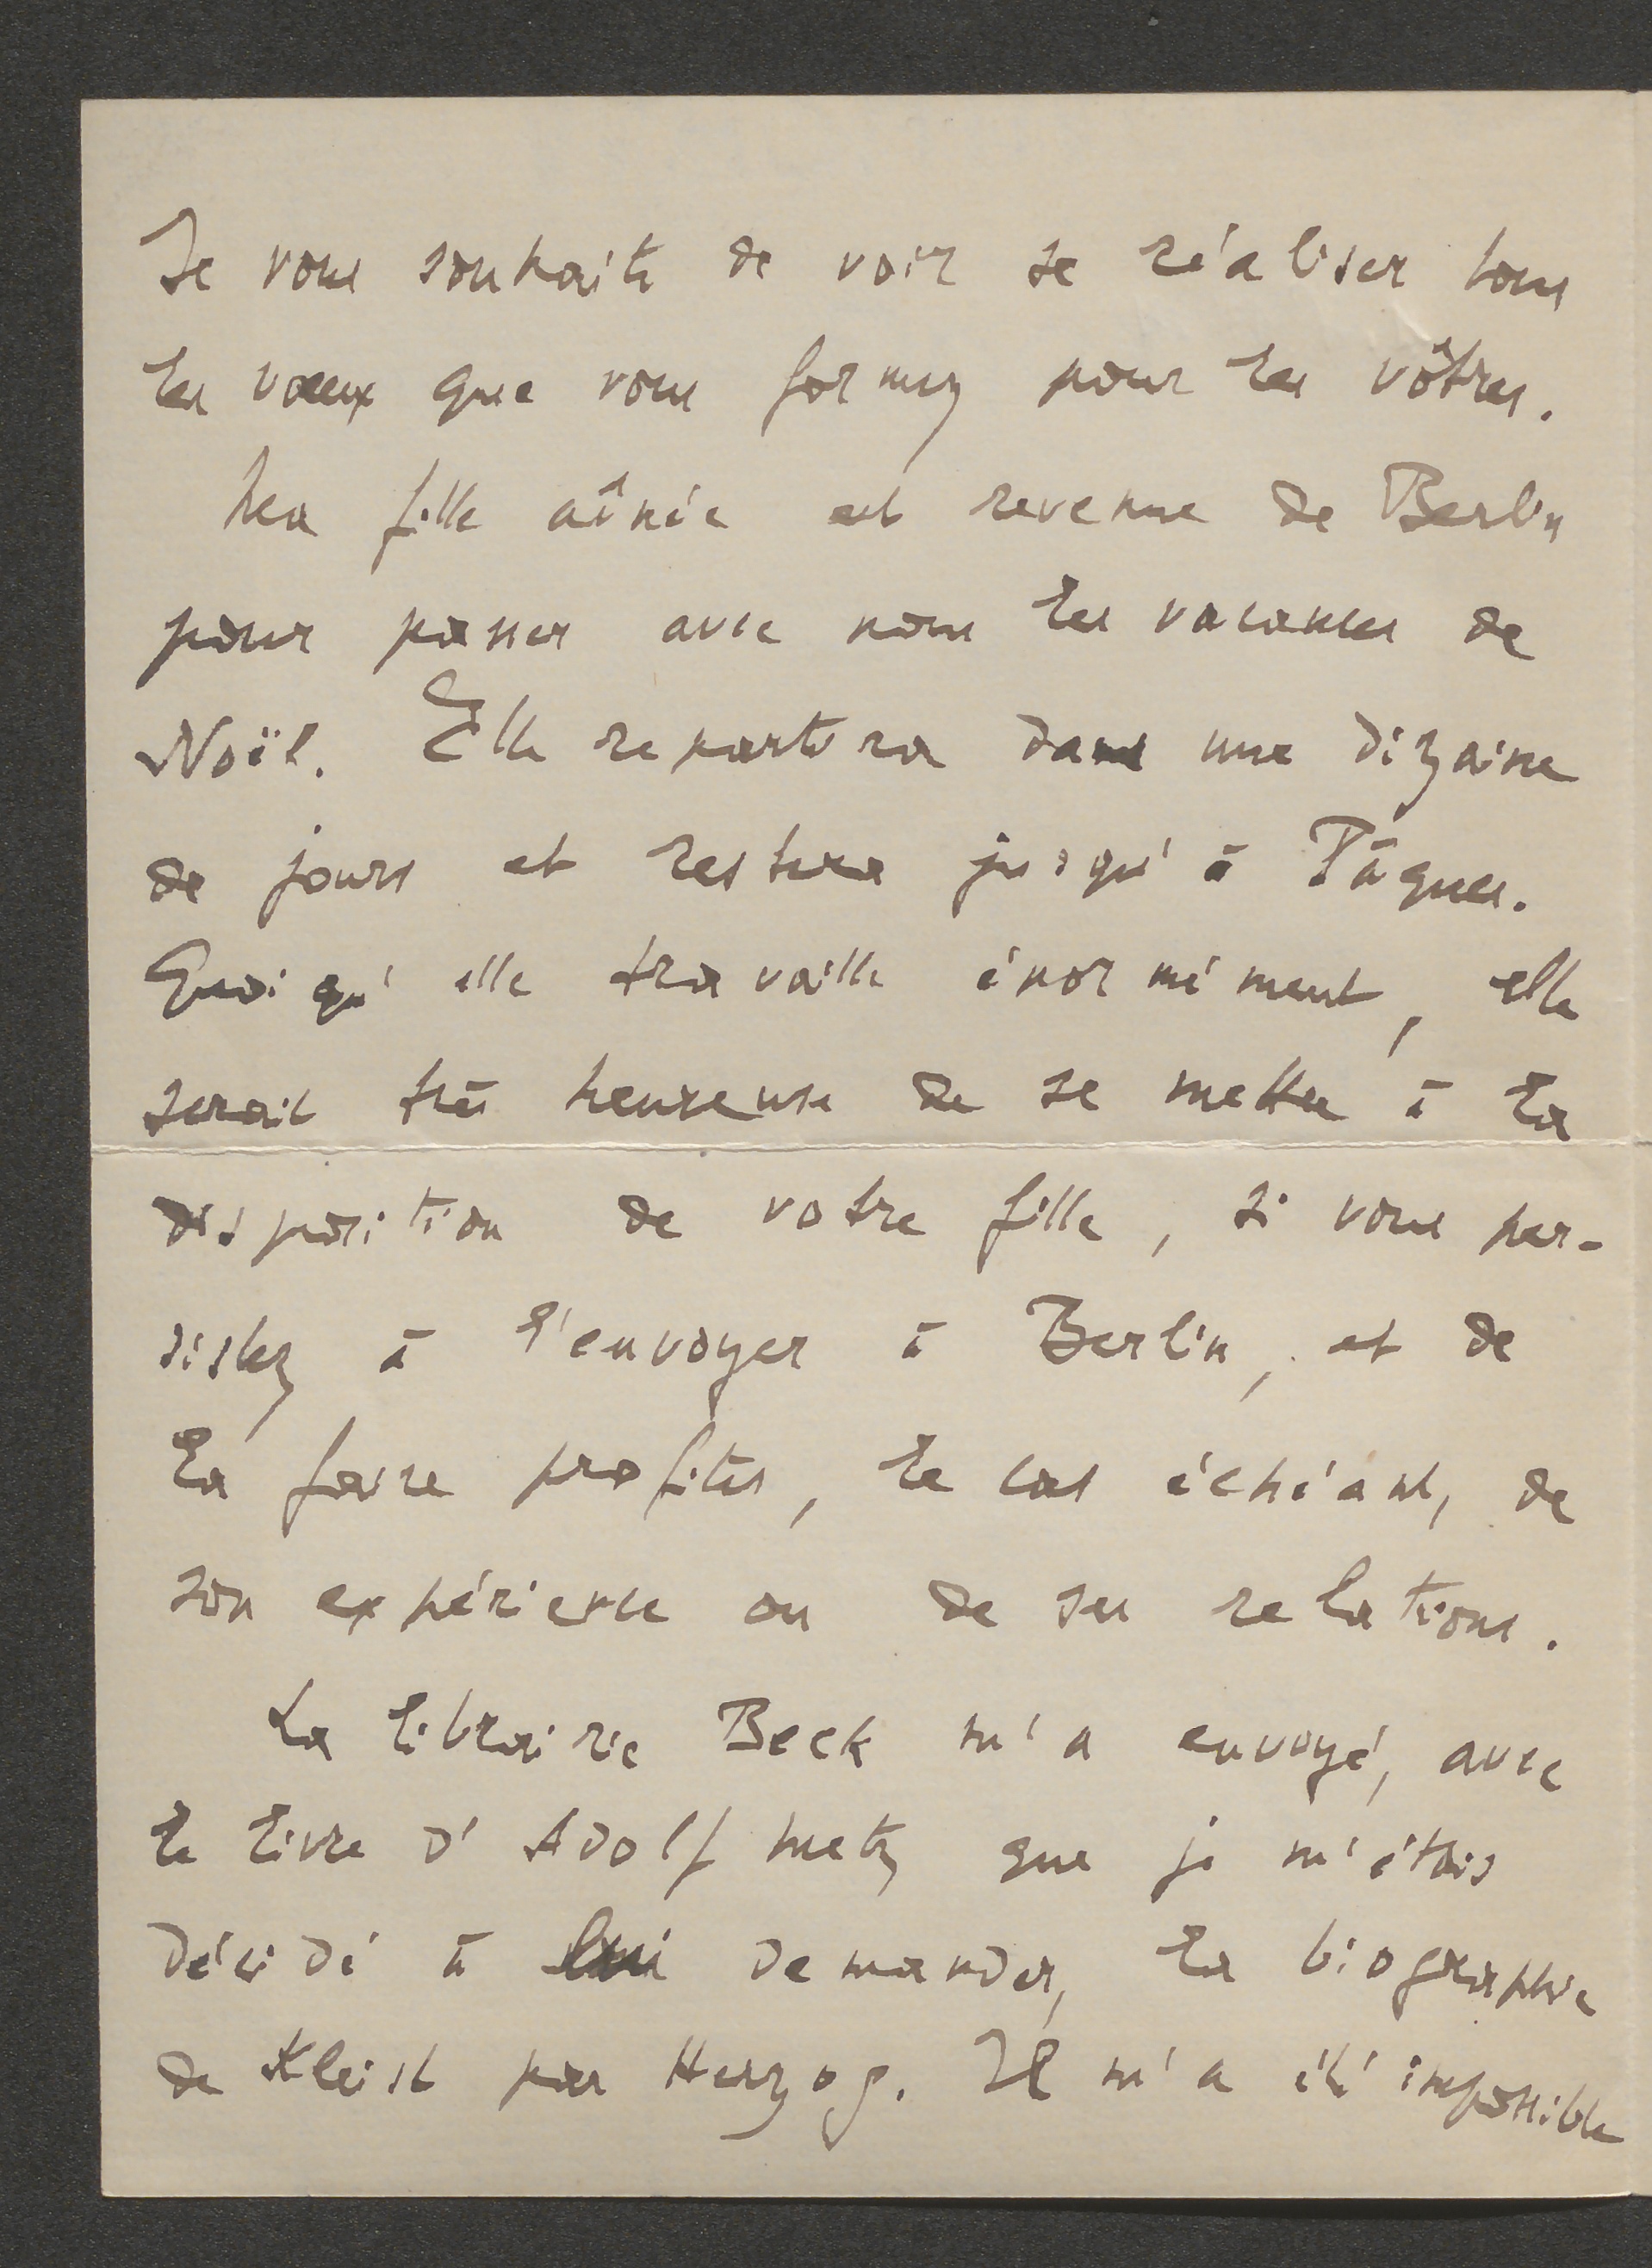 Je vous souhaite de voir se réaliser tous
les vœux que vous formez pour les vôtres.
Ma fille aînée est revenue de Berlin
pour passer avec nous les vacances de
Noël. Elle repartira dans une dizaine
de jours et restera jusqu'à Pâques.
Quoiqu'elle travaille énormément, elle
serait très heureuse de se mettre à la
disposition de votre fille, si vous per-
sistez à l'envoyer à Berlin, et de
la faire profiter, le cas échéant, de
son expérience ou de ses relations.
La librairie Beck m'a envoyé, avec
le livre d'Adolf Metz que je m'étais
décidé à lui demander, la biographie
de Kleist par Herzog. Il m'a été impossible